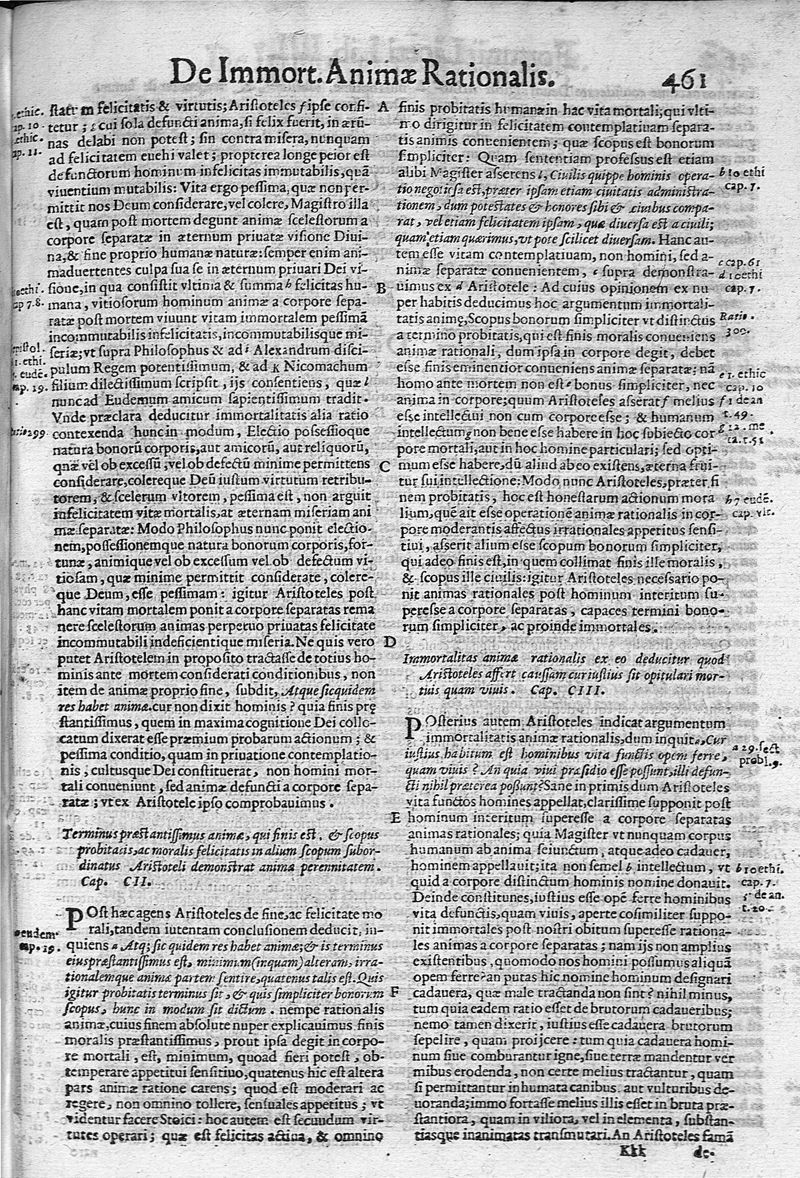 De Immort. Animæ Rationalis.
461
statum felicitatis & virtutis; Aristoteles f ipse confi-
tetur; g cui sola defuncti anima, si felix fuerit, in ærũ-
nas delabi non potest; sin contra misera, nunquam
ad felicitatem euehi valet; propterea longe peior est
defunctorum hominum infelicitas immutabilis, quã
viuentium mutabilis: Vita ergo pessima, quæ non per-
mittit nos Deum considerare, vel colere, Magistro illa
est, quam post mortem degunt animæ scelestorum a
corpore separatæ in æternum priuatæ visione Diui-
na, & fine proprio humanæ naturæ: semper enim ani-
maduertentes culpa sua se in æternum priuari Dei vi-
sione, in qua consistit vltima & summa h felicitas hu-
mana, vitiosorum hominum animæ a corpore sepa-
ratæ post mortem viuunt vitam immortalem pessimã
incommutabilis infelicitatis, incommutabilisque mi-
seriæ; vt supra Philosophus & ad i Alexandrum disci-
pulum Regem potentissimum, & ad K Nicomachum
filium dilectissimum scripsit, ijs consentiens, quæ l
nunc ad Eudemum amicum sapientissimum tradit.
Vnde præclara deducitur immortalitatis alia ratio
contexenda hunc in modum, Electio possessioque
natura bonorũ corporis, aut amicorũ, aut reliquorũ,
quæ vel ob excessũ, vel ob defectũ minime permittens
considerare, colereque Deũ iustum virtutum retribu-
torem, & scelerum vltorem, pessima est, non arguit
infelicitatem vitæ mortalis, at æternam miseriam ani
mæ separatæ: Modo Philosophus nunc ponit electio-
nem, possessionemque natura bonorum corporis, for-
tunæ, animique vel ob excessum vel ob defectum vi-
tiosam, quæ minime permittit considerate, colere-
que Deum, esse pessimam: igitur Aristoteles post
hanc vitam mortalem ponit a corpore separatas rema
nere scelestorum animas perpetuo priuatas felicitate
incommutabili indeficientique miseria. Ne quis vero
putet Aristotelem in proposito tractasse de totius ho-
minis ante mortem considerati conditionibus, non
item de animæ proprio fine, subdit, Atque sic quidem
res habet animæ. cur non dixit hominis? quia finis prę
stantissimus, quem in maxima cognitione Dei collo-
catum dixerat esse præmium probarum actionum; &
pessima conditio, quam in priuatione contemplatio-
nis, cultusque Dei constituerat, non homini mor-
tali conueniunt, sed animæ defuncti a corpore sepa-
ratæ; vt ex Aristotele ipso comprobauimus.
Terminus præstantissimus animæ, qui finis est, & scopus
probitatis, ac moralis felicitatis in alium scopum subor-
dinatus Aristoteli demonstrat animæ perennitatem.
Cap. CII.
POst hæc agens Aristoteles de fine, ac felicitate mo
rali, tandem iutentam conclusionem deducit, in-
quiens a Atq; sic quidem res habet animæ; & is terminus
eius præstantissimus est, minimum (inquam) alteram, irra-
tionalemque animæ partem sentire, quatenus talis est. Quis
igitur probitatis terminus sit, & quis simpliciter bonorum
scopus, hunc in modum sit dictum. nempe rationalis
animæ, cuius finem absolute nuper explicauimus finis
moralis præstantissimus, prout ipsa degit in corpo-
re mortali, est, minimum, quoad fieri potest, ob-
temperare appetitui sensitiuo, quatenus hic est altera
pars animæ ratione carens; quod est moderari ac
regere, non omnino tollere, sensuales appetitus; vt
videntur facere Stoici: hoc autem est secundum vir-
tutes operari; quæ est felicitas actiua, & omnino
ethic.
ap. 10
ethic.
ap. 11.
ethi.
ap 7. 8.
ethi.
eudē.
ap. 19.
299
eudem.
cap. 19.
A
B
C
D
E
F
finis probitatis humanæ in hac vita mortali; qui vlti-
mo dirigitur in felicitatem contemplatiuam separa-
tis animis conuenientem; quæ scopus est bonorum
simpliciter: Quam sententiam professus est etiam
alibi Magister asserens b, Ciuilis quippe hominis opera-
tio negotiosa est, præter ipsam etiam ciuitatis administra-
tionem, dum potestates & honores sibi & ciuibus compa-
rat, vel etiam felicitatem ipsam, quæ diuersa est a ciuili;
quam etiam quærimus, vt pote scilicet diuersam. Hanc au-
tem esse vitam contemplatiuam, non homini, sed a-
nimæ separatæ conuenientem, c supra demonstra-
uimus ex d Aristotele: Ad cuius opinionem ex nu
per habitis deducimus hoc argumentum immortali-
tatis animę, Scopus bonorum simpliciter vt distinctus
a termino probitatis, qui est finis moralis conueniens
animæ rationali, dum ipsa in corpore degit, debet
esse finis eminentior conueniens animæ separatæ; nã
homo ante mortem non est e bonus simpliciter, nec
anima in corpore; quum Aristoteles asserat f melius
esse intellectui non cum corpore esse; & humanum
intellectum g non bene esse habere in hoc subiecto cor
pore mortali, aut in hoc homine particulari; sed opti-
mum esse habere, dũ aliud ab eo existens, æterna frui-
tur sui intellectione: Modo nunc Aristoteles, præter fi
nem probitatis, hoc est honestarum actionum mora
lium, quē ait esse operationē animæ rationalis in cor-
pore moderantis affectus irrationales appetitus sensi-
tiui, asserit alium esse scopum bonorum simpliciter,
qui adeo finis est, in quem collimat finis ille moralis,
& scopus ille ciuilis: igitur Aristoteles necessario po-
nit animas rationales post hominum interitum su-
peresse a corpore separatas, capaces termini bono-
rum simpliciter, ac proinde immortales.
Immortalitas animæ rationalis ex eo deducitur quod
Aristoteles affert caussam cur iustius sit opitulari mor-
tuis quam viuis. Cap. CIII.
POsterius autem Aristoteles indicat argumentum
immortalitatis animæ rationalis, dum inquit a, Cur
iustius habitum est hominibus vita functis opem ferre,
quam viuis? An quia viui præsidio esse possunt, illi defun-
cti nihil præterea possunt? Sane in primis dum Aristoteles
vita functos homines appellat, clarissime supponit post
hominum interitum superesse a corpore separatas
animas rationales; quia Magister vt nunquam corpus
humanum ab anima seiunctum, atque adeo cadauer,
hominem appellauit; ita non semel b intellectum, vt
quid a corpore distinctum hominis nomine donauit.
Deinde constitunes, iustius esse opē ferre hominibus
vita defunctis, quam viuis, aperte cosimiliter suppo-
nit immortales post nostri obitum superesse rationa-
les animas a corpore separatas; nam ijs non amplius
existentibus, quomodo nos homini possumus aliquã
opem ferre? an putas hic nomine hominum designari
cadauera, quæ male tractanda non sint? nihil minus,
tum quia eadem ratio esset de brutorum cadaueribus;
nemo tamen dixerit, iustius esse cadauera brutorum
sepelire, quam proijcere: tum quia cadauera homi-
num siue comburantur igne, siue terræ mandentur ver
mibus erodenda, non certe melius tractantur, quam
si permittantur inhumata canibus aut vulturibus de-
uoranda; immo fortasse melius illis esset in bruta præ-
stantiora, quam in viliora, vel in elementa, substan-
tiasque inanimatas transmutari. An Aristoteles famã
b 10 ethi
cap. 7.
c cap. 61
d 10 ethi
cap. 7.
Ratio.
300.
e 1. ethic
cap. 10
f 1 de an
t. 49.
g 12. me
ta. t. 51
h 7 eudē.
cap. vlt.
a 29. sect
probl. 9.
b 10 ethi.
cap. 7.
3. de an.
t. 20.
Kkk
de-